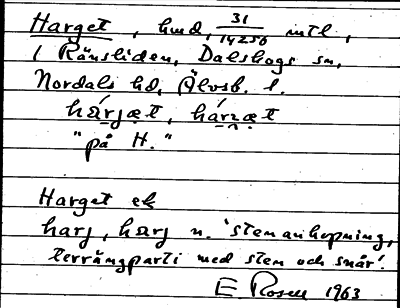 Harget, hmd, 31/14256 intl,
i Ränsliden, Dalskogs sn,
Nordals hd, Älvsb. l.
hárjæt, hárzæt
"på H."
Harget ek
harj, harj n. 'stenanhopning,
terrängparti med sten och snår'.
E Rosell 1963